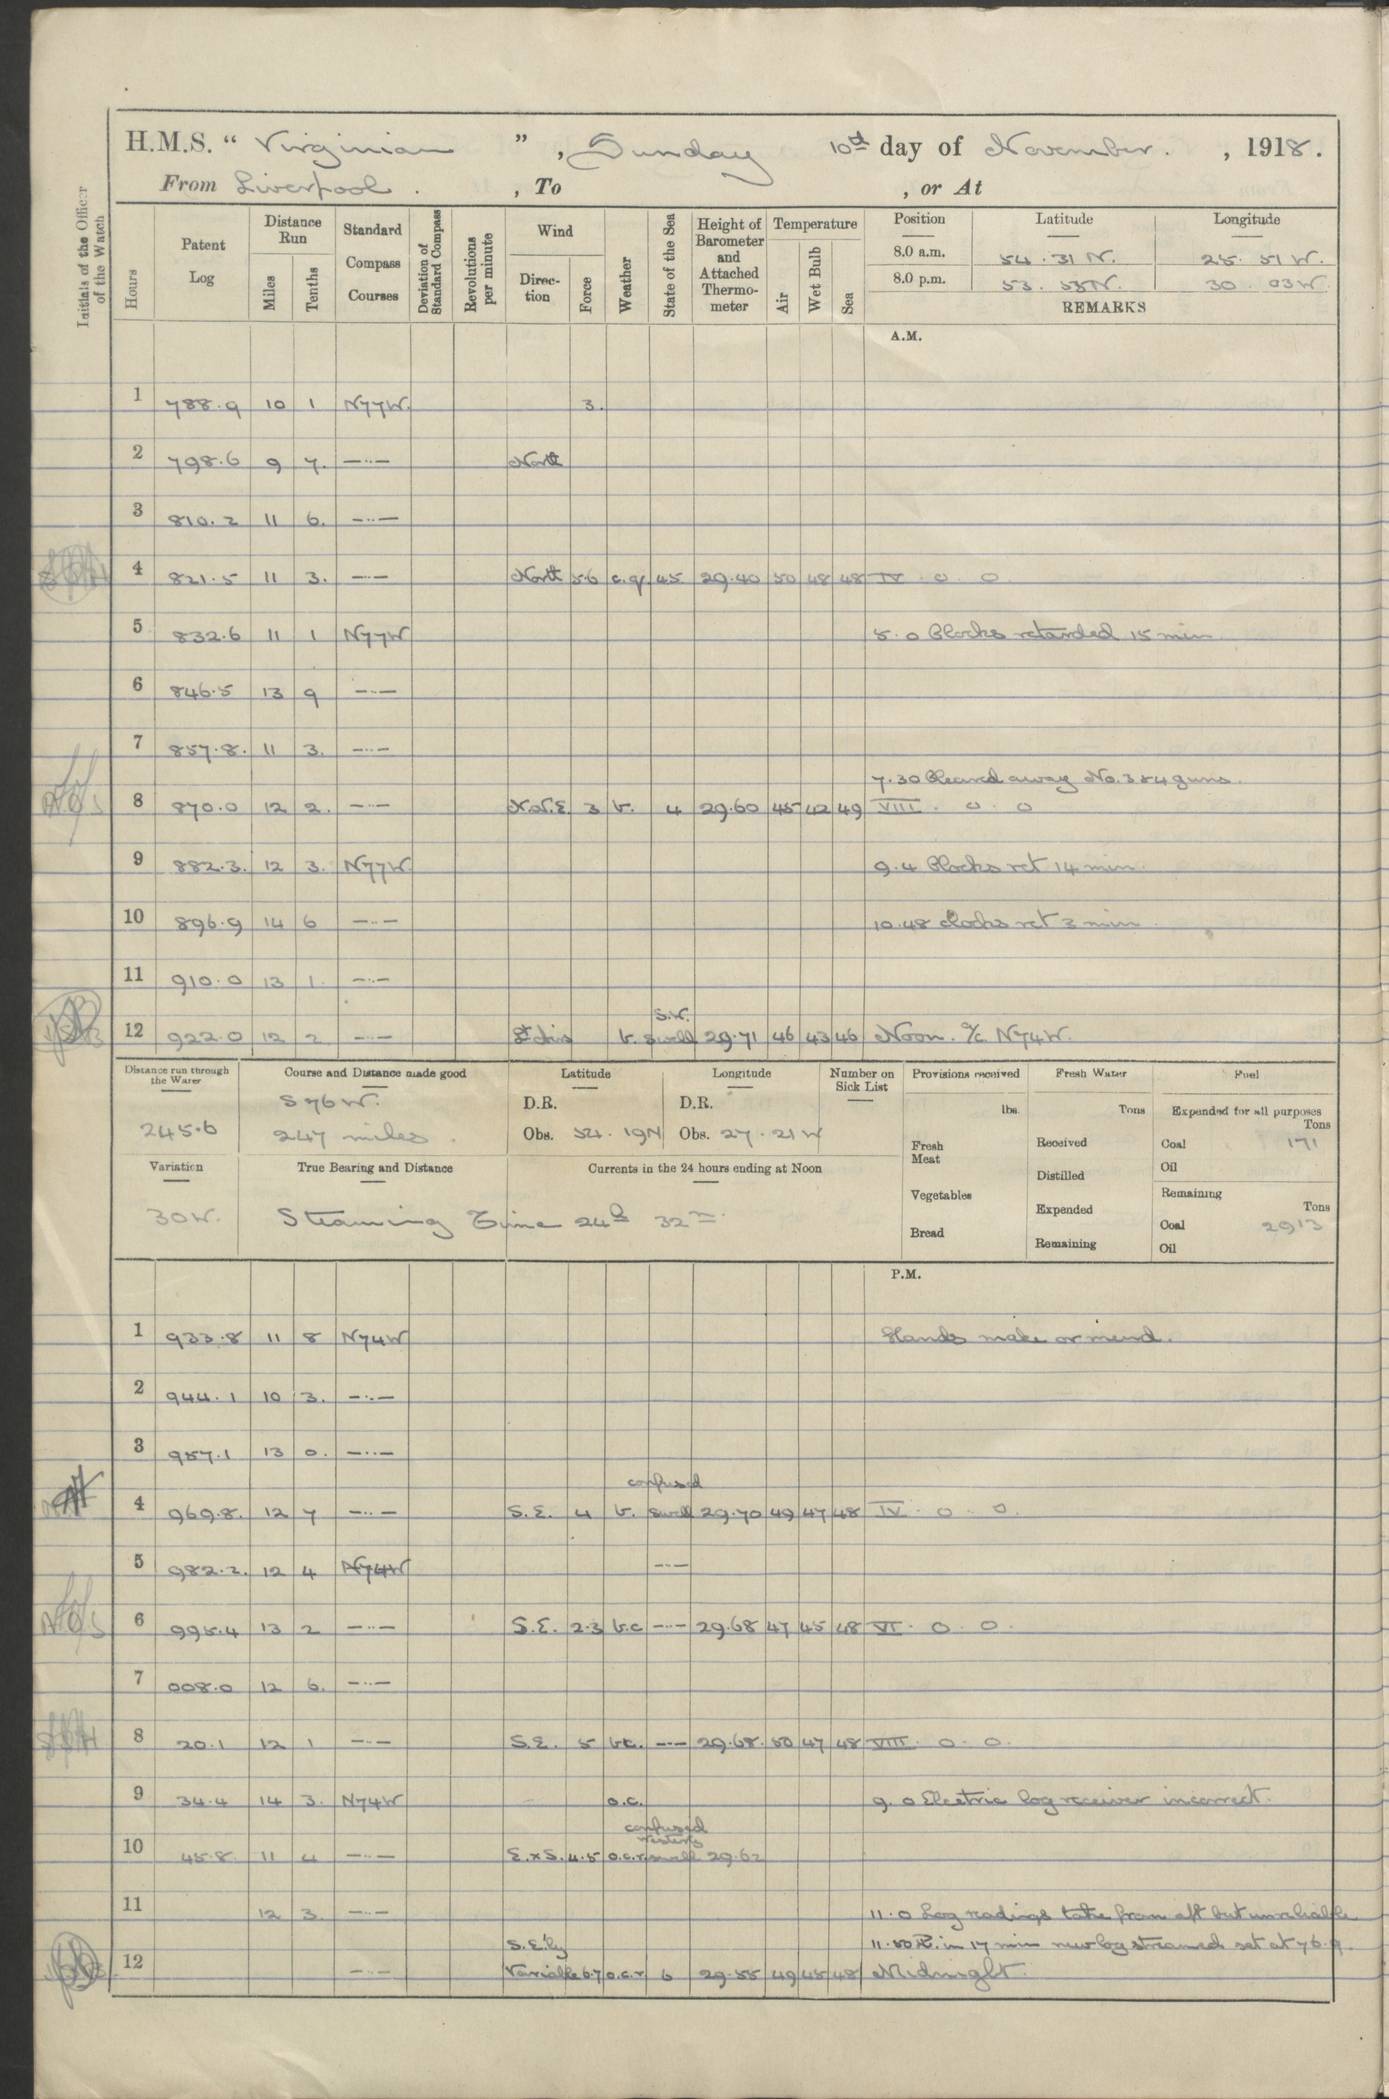 H.M.S. “ Virginian ” , Sunday 10th day of November. , 1918.
From Liverpool . , To , or At
Initials of the Officer of the Watch
Hours
Patent Log
Distance Run
Miles
Tenths
Standard Compass Courses
Deviation of Standard Compass
Revolutions per minute
Wind
Direction
Force
Weather
State of the Sea
Height of Barometer and Attached Thermometer
Temperature
Air
Wet Bulb
Sea
Position Latitude Longitude
8.0 a.m. 54 . 31 N. 25 . 51 W.
8.0 p.m. 53 . 53 N. 30 . 03 W.
REMARKS
A.M.
1 788.9 10 1 N77W. 3.
2 798.6 9 7. —··— North
3 810.2 11 6. —··—
4 821.5 11 3. —··— North 5.6 c.q. 45 29.40 50 48 48 IV . 0 . 0
5 832.6 11 1 N77W 5.0 Clocks retarded 15 min
6 846.5 13 9 —··—
7 857.8. 11 3. —··—
7.30 Cleared away No. 3 & 4 guns.
8 870.0 12 2. —··— N.N.E. 3 b. 4 29.60 45 42 49 VIII . 0 . 0
9 882.3. 12 3. N77W 9.4 Clocks ret 14 min.
10 896.9 14 6 —··— 10.48 clocks ret 3 min.
11 910.0 13 1. —··—
S.W.
12 922.0 12 2 —··— Lt airs b. swell 29.71 46 43 46 Noon. a/c N74W.
Distance run through the Water
245.6
Course and Distance made good
S 76 W.
247 miles.
Latitude
D.R.
Obs. 54 . 19N
Longitude
D.R.
Obs. 27 . 21 W
Number on Sick List
Provisions received
lbs.
Fresh Meat
Vegetables
Bread
Fresh Water
Tons
Received
Distilled
Expended
Remaining
Fuel
Expended for all purposes
Tons
Coal 171
Oil
Remaining
Tons
Coal 2913
Oil
Variation
30W.
True Bearing and Distance
Currents in the 24 hours ending at Noon
Steaming Time 24h 32m.
P.M.
1 933.8 11 8 N74W Hands make or mend.
2 944.1 10 3. —··—
3 957.1 13 0. —··—
confused
4 969.8. 12 7 —··— S.E. 4 b. swell 29.70 49 47 48 IV . 0 . 0.
5 982.2. 12 4 N74W —··—
6 995.4 13 2 —··— S.E. 2.3 b.c —··— 29.68 47 45 48 VI . 0 . 0.
7 008.0 12 6. —··—
8 20.1 12 1 —··— S.E. 5 bc. —··— 29.68. 50 47 48 VIII . 0 . 0.
9 34.4 14 3. N74W o.c. 9.0 Electric log receiver incorrect.
confused
westerly
10 45.8. 11 4 —··— E.x S. 4.5 o.c.r. swell 29.62
11 12 3. —··— 11.0 Log readings take from aft but unreliable
S.E.'ly 11.50 P. in 17 min new log streamed set at 76.9.
12 —··— Variable 6.7 o.c.r 6 29.55 49 45 48 Midnight.